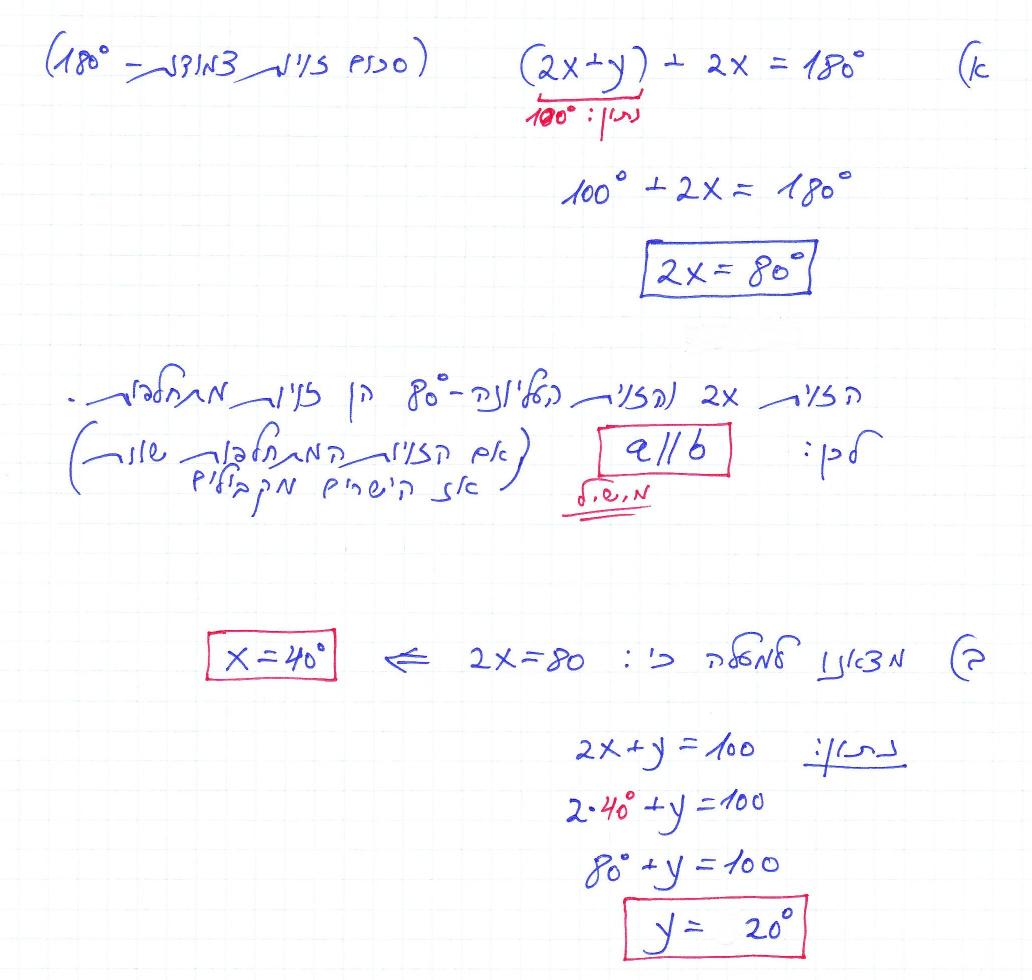 א) (2x+y) + 2x = 180° (סכום זויות צמודות - 180°)
נתון: 100°
100° + 2x = 180°
2x = 80°
הזוית 2x והזוית העליונה - 80° הן זויות מתחלפות.
לכן: a//b (אם הזויות המתחלפות שוות
אז הישרים מקבילים)
מ.ש.ל
ב) מצאנו למעלה כי: 2x=80 ⇐ x=40°
נתון: 2x+y=100
2·40°+y=100
80°+y=100
y= 20°